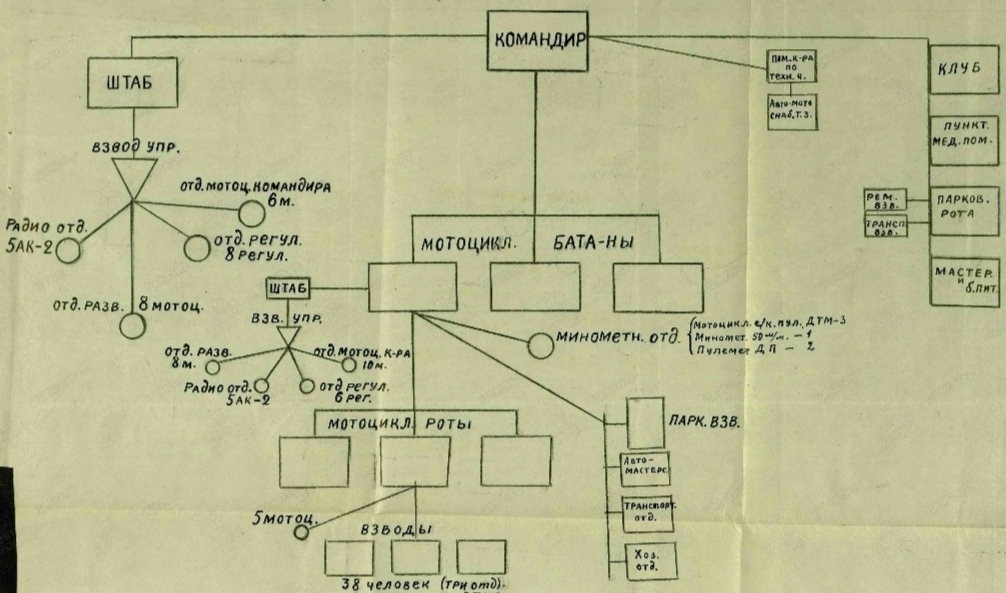 КОМАНДИР
ШТАБ
ВЗВОД УПР.
ОТД. МОТОЦ. КОМАНДИРА
6 М.
ОТД. РЕГУЛ.
8 РЕГУЛ.
РАДИО ОТД.
5АК-2
ОТД. РАЗВ. 8 МОТОЦ.
ПОМ. К-РА
ПО
ТЕХН. Ч.
АВТО-МОТО
СНАБ. Т. З.
КЛУБ
ПУНКТ.
МЕД. ПОМ.
РЕМ.
ВЗВ.
ТРАНСП.
ВЗВ.
ПАРКОВ.
РОТА
МАСТЕР.
И
Б. ПИТ.
МОТОЦИКЛ. БАТА-НЫ
ШТАБ
ВЗВ. УПР.
ОТД. РАЗВ.
8 М.
РАДИО ОТД.
5АК-2
ОТД. РЕГУЛ.
6 РЕГ.
ОТД. МОТОЦ. К-РА
10 М.
МИНОМЕТН. ОТД.
МОТОЦИКЛ. С/К. ПУЛ. ДТМ-3
МИНОМЕТ. 50 М/М. — 1
ПУЛЕМЕТ ДП — 2
МОТОЦИКЛ. РОТЫ
ПАРК. ВЗВ.
АВТО-
МАСТЕРС.
ТРАНСПОРТ.
ОТД.
ХОЗ.
ОТД.
5 МОТОЦ.
ВЗВОДЫ
38 ЧЕЛОВЕК (ТРИ ОТД).